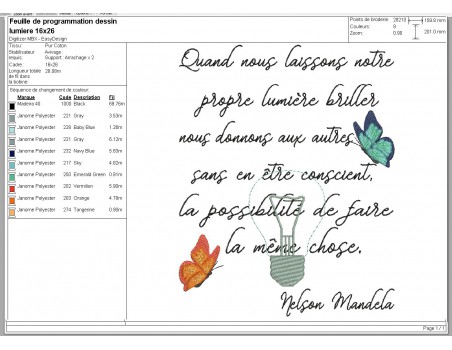 Feuille de programmation dessin
lumiere 16x26
Digitizer MBX - EasyDesign
Tissu: Pur Coton
Stabilisateur requis: Arrivage : Support : Arrachage x 2
Cadre: 16x26
Longueur totale de fil dans la bobine: 28.08m
Points de broderie: 28210
Couleurs: 9
Zoom: 0.98
159.8 mm
201.0 mm
Séquence de changement de couleur:
Marque Code Description Fil
Madeira 40 1000 Black 68.76m
Janome Polyester 221 Gray 3.53m
Janome Polyester 228 Baby Blue 1.26m
Janome Polyester 221 Gray 6.12m
Janome Polyester 232 Navy Blue 5.03m
Janome Polyester 217 Sky 4.02m
Janome Polyester 250 Emerald Green 0.81m
Janome Polyester 202 Vermilion 5.98m
Janome Polyester 203 Orange 4.78m
Janome Polyester 274 Tangerine 0.98m
Quand nous laissons notre
propre lumière briller
nous donnons aux autres,
sans en être conscient,
la possibilité de faire
la même chose.
Nelson Mandela
Page 1 / 1